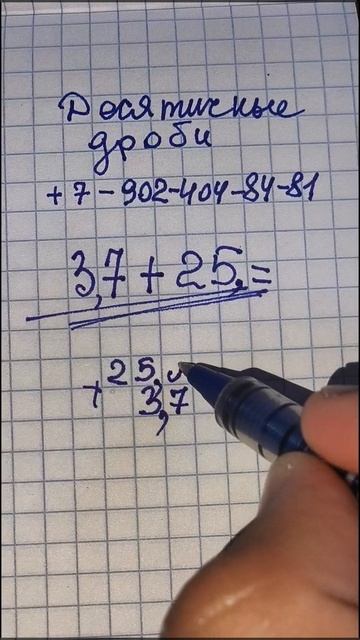 Десятичные
дроби
+7-902-404-84-81
3,7 + 25, =
+ 25,
3,7